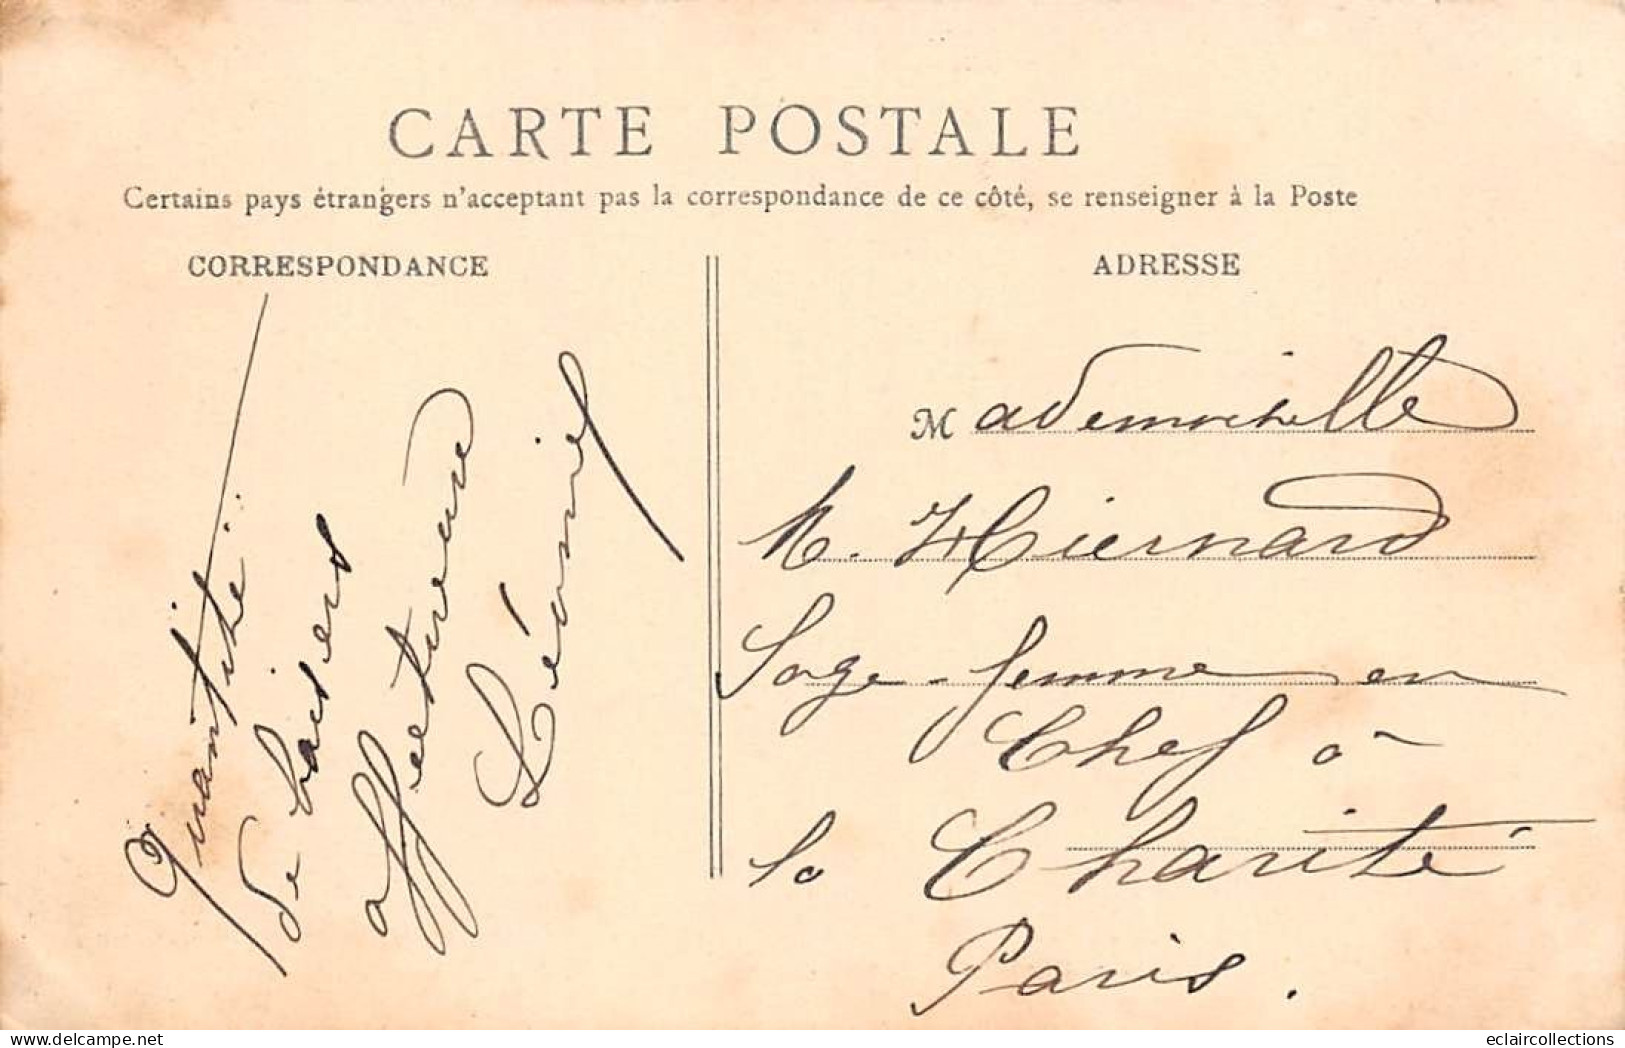 CARTE POSTALE
Certains pays étrangers n'acceptant pas la correspondance de ce côté, se renseigner à la Poste
CORRESPONDANCE
Quantité
de baisers
affectueux
ADRESSE
Mademoiselle
M. Hiernard
Sage-femme en
Chef à
la Charité
Paris.
delcampe.net
eclaircollections